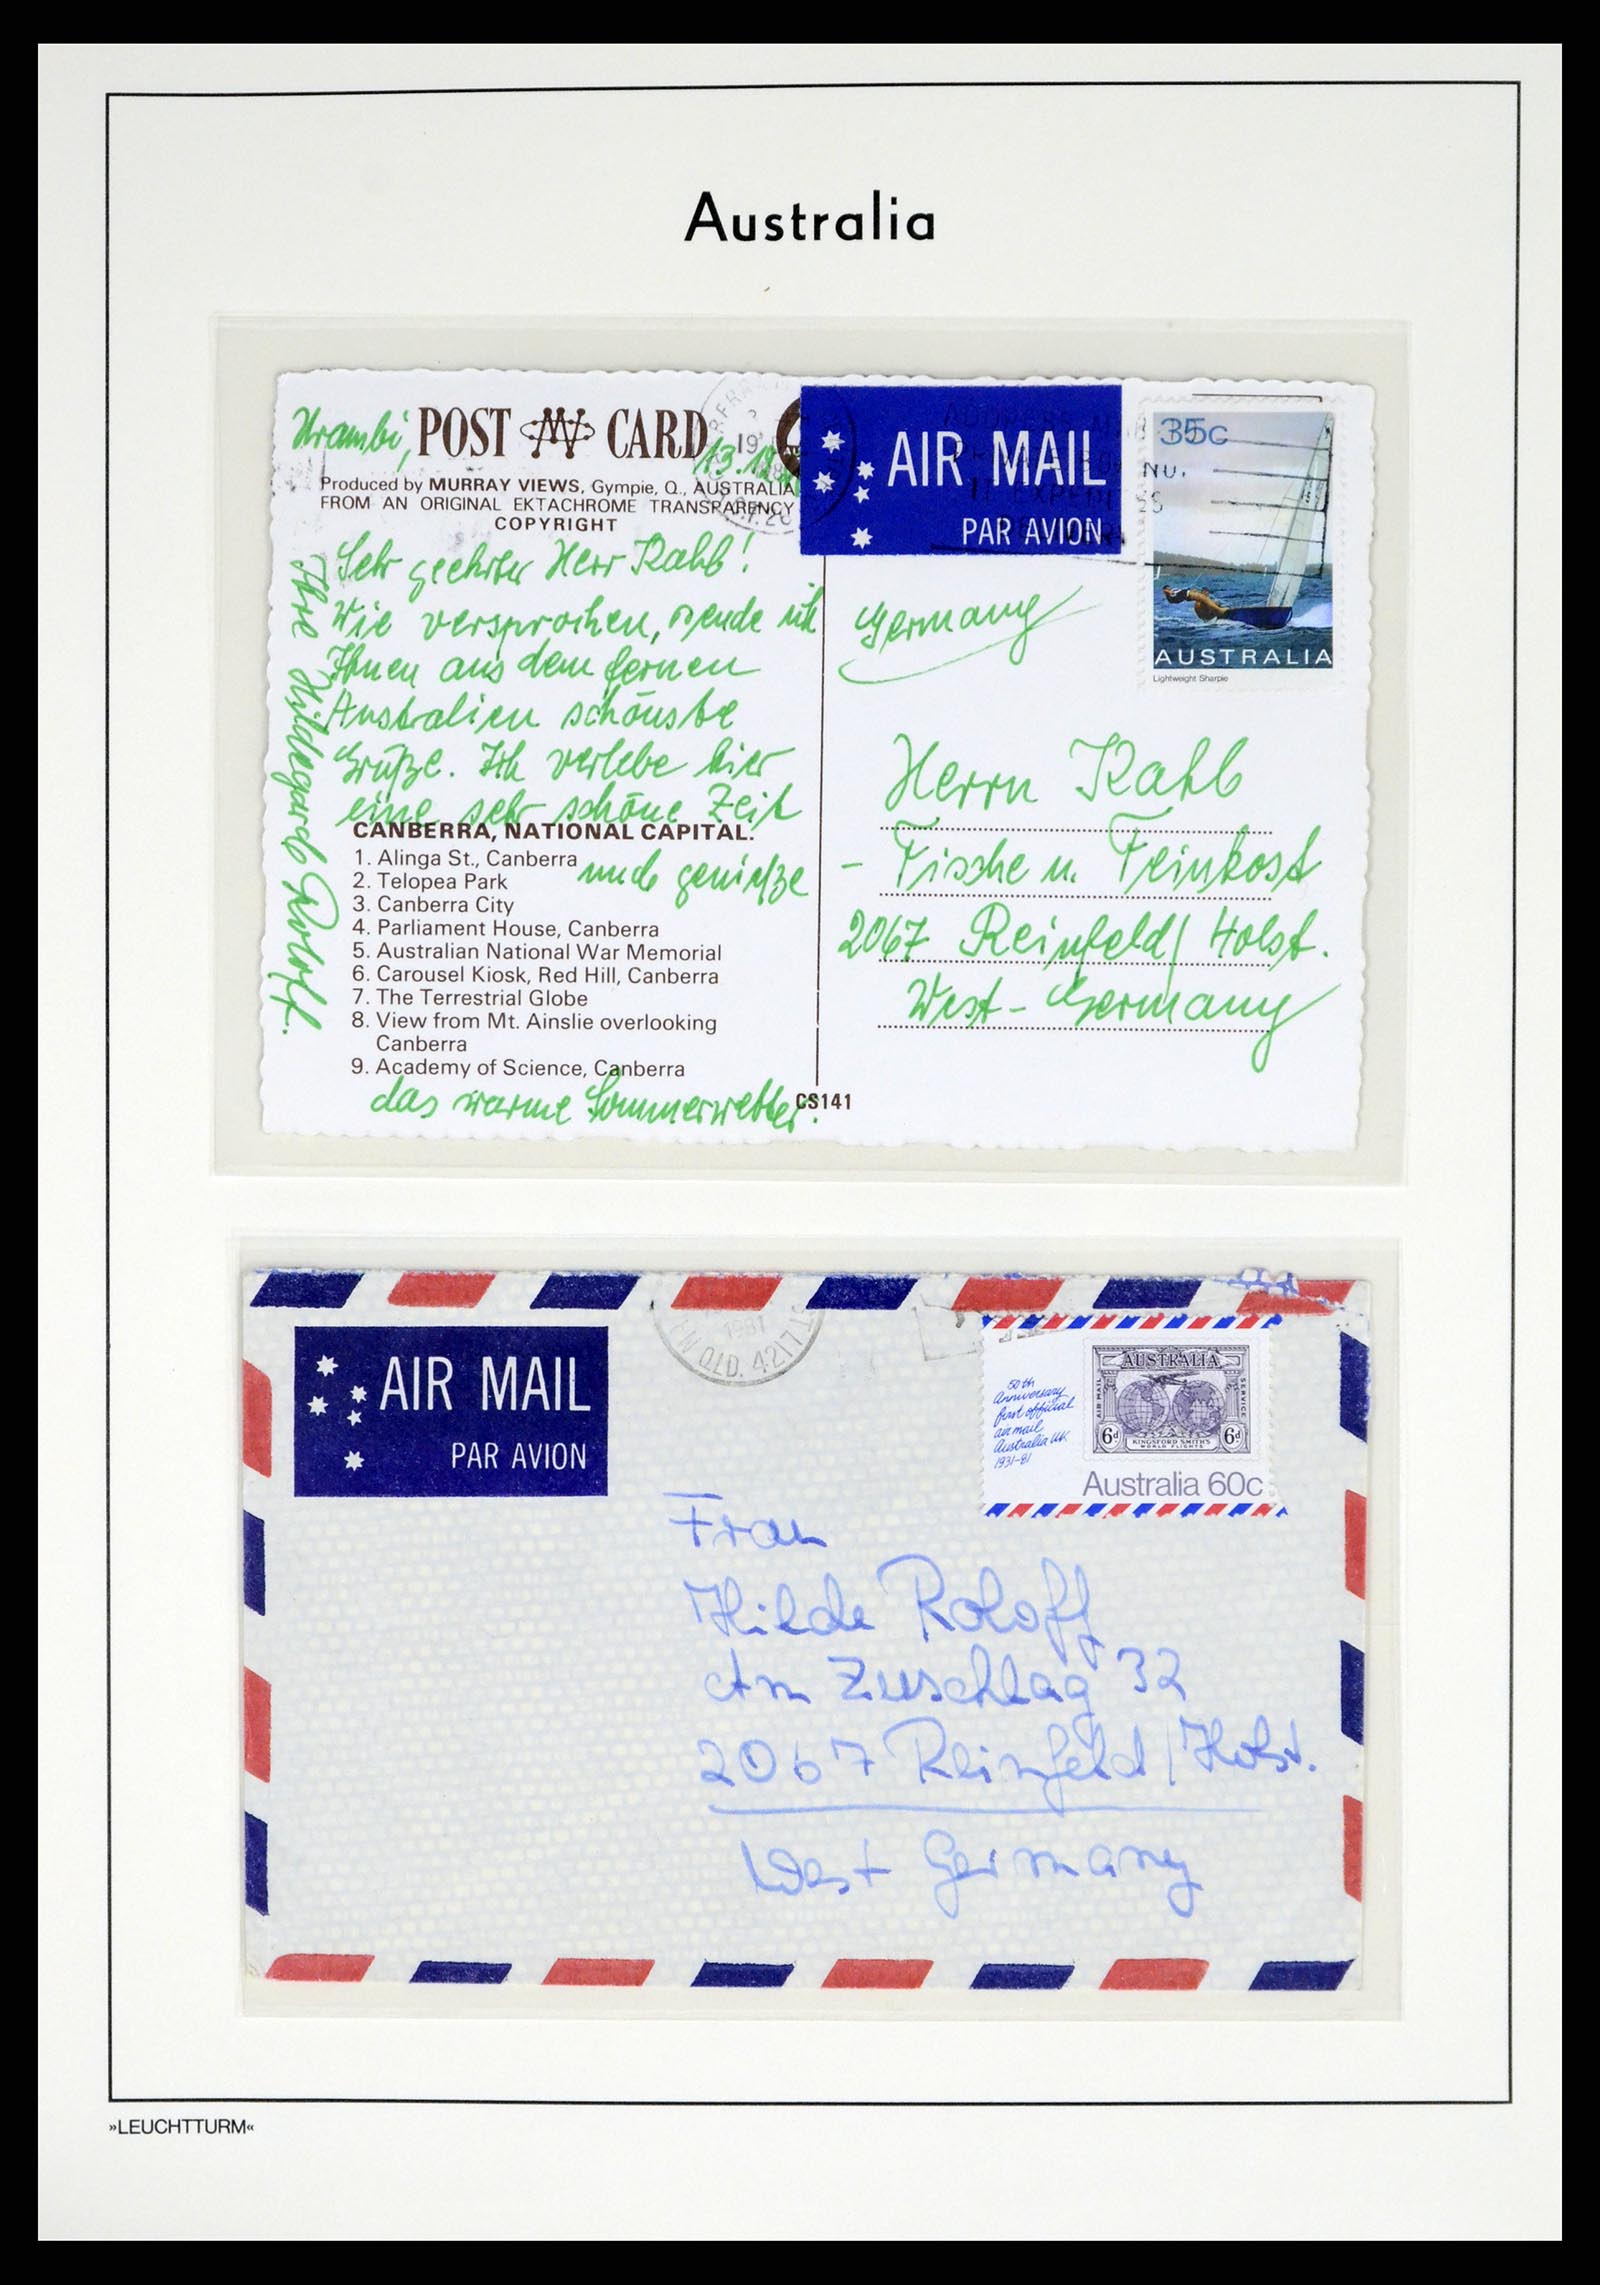 Australia
Urambi, POST CARD
Produced by MURRAY VIEWS, Gympie, Q., AUSTRALIA
FROM AN ORIGINAL EKTACHROME TRANSPARENCY
COPYRIGHT
AIR MAIL
PAR AVION
35c
AUSTRALIA
Lightweight Sharpie
Sehr geehrter Herr Kahb!
Wie versprochen, sende ich
Ihnen aus dem fernen
Australien schönste
Grüße. Ich verlebe hier
eine sehr schöne Zeit
CANBERRA, NATIONAL CAPITAL.
1. Alinga St., Canberra
und genieße
2. Telopea Park
3. Canberra City
4. Parliament House, Canberra
5. Australian National War Memorial
6. Carousel Kiosk, Red Hill, Canberra
7. The Terrestrial Globe
8. View from Mt. Ainslie overlooking
Canberra
9. Academy of Science, Canberra
das warme Sommerwetter.
CS141
Ihre Hildegard Roloff.
Germany
Herrn Kahb
- Fische u. Feinkost
2067 Reinfeld/Holst.
West-Germany
AIR MAIL
PAR AVION
1981
QLD. 4217
50th
Anniversary
first official
air mail
Australia UK
1931-81
AUSTRALIA
AIR MAIL
SERVICE
6d
6d
KINGSFORD SMITH'S
WORLD FLIGHTS
Australia 60c
Frau
Hilde Roloff
Am Zuschlag 32
2067 Reinfeld/Holst.
West Germany
»LEUCHTTURM«